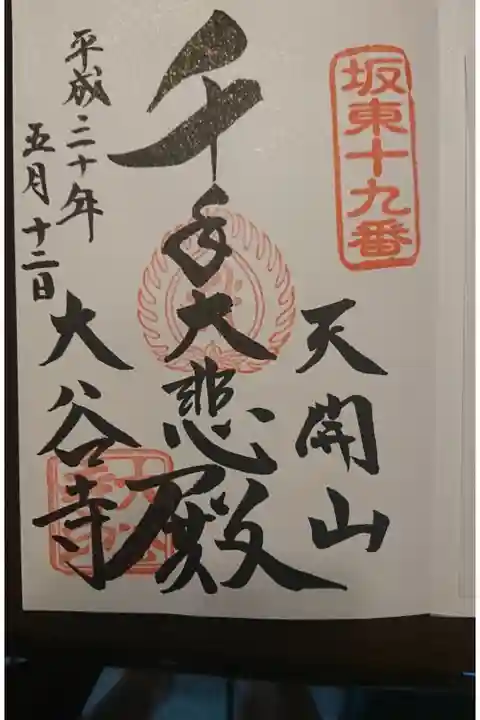 坂東十九番
天開山
千手大悲殿
大谷寺
平成二十年
五月十二日